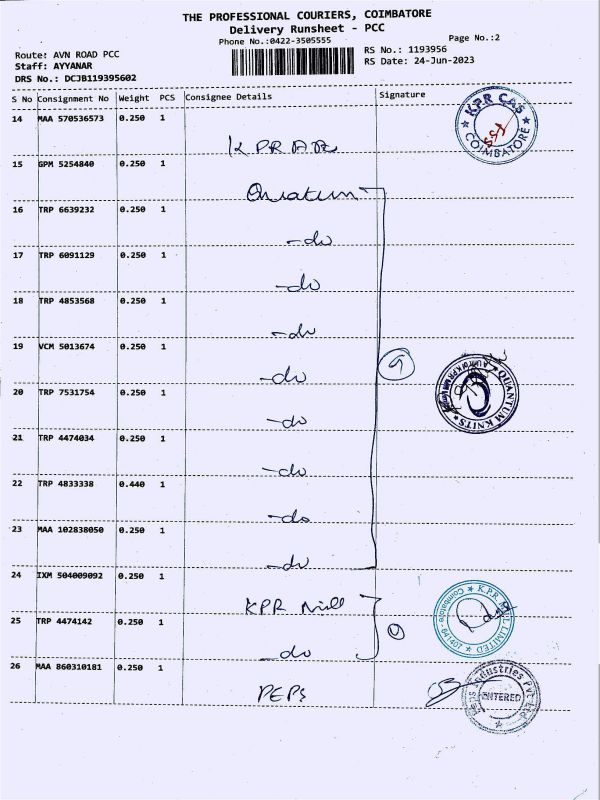 THE PROFESSIONAL COURIERS, COIMBATORE
Delivery Runsheet - PCC
Phone No.:0422-3505555
Page No.:2
Route: AVN ROAD PCC
RS No.: 1193956
Staff: AYYANAR
RS Date: 24-Jun-2023
DRS No.: DCJB119395602
S No Consignment No Weight PCS Consignee Details Signature
14 MAA 570536573 0.250 1
KPR CAS
COIMBATORE
K P R
15 GPM 5254840 0.250 1
Quatum
16 TRP 6639232 0.250 1
-do
17 TRP 6091129 0.250 1
-do
18 TRP 4853568 0.250 1
-do
19 VCM 5013674 0.250 1
-do
9
QUANTUM KNITS
20 TRP 7531754 0.250 1
-do
21 TRP 4474034 0.250 1
-do
22 TRP 4833338 0.440 1
-do
23 MAA 102838050 0.250 1
-do
24 IXM 504009092 0.250 1
KPR Mill
K.P.R. MILL LIMITED
Coimbatore - 641407
25 TRP 4474142 0.250 1
-do
26 MAA 860310181 0.250 1
PEPS
Peps Industries Pvt Ltd
ENTERED